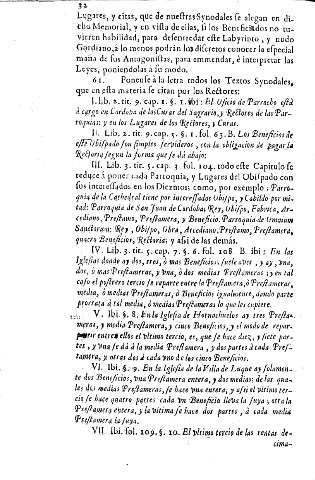 32
Lugares, y citas, que de nuestras Synodales se alegan en di-
cho Memorial, y en vista de ellas, si los Beneficiados no tu-
vieren habilidad, para desenredar este Labyrinto, y nudo
Gordiano, à lo menos podràn los discretos conocer la especial
maña de sus Antagonistas, para emmendar, è interpretar las
Leyes, poniendolas à su modo.
61. Ponense à la letra todos los Textos Synodales,
que en esta materia se citan por los Rectores:
I. Lib. 2. tit. 9. cap. 1. §. 1. ibi: El Oficio de Parrocho està
à cargo en Cordoba de los Curas del Sagrario, y Rectores de las Par-
roquias: y en los Lugares de los Rectores, y Curas.
II. Lib. 2. tit. 9. cap. 5. §. 1. fol. 63. B. Los Beneficios de
este Obispado son simples servideros, con la obligacion de pagar la
Rectoria segun la forma que se dà abajo:
III. Lib. 3. tit. 5. cap. 3 fol. 104. todo este Capitulo se
reduce à poner cada Parroquia, y Lugares del Obispado con
sus interessados en los Diezmos; como, por exemplo: Parro-
quia de la Cathedral tiene por interessados Obispo, y Cabildo por mi-
tad: Parroquia de San Juan de Cordoba: Rey, Obispo, Fabrica, Ar-
cediano, Prestamo, Prestamera, y Beneficio. Parroquia de Omnium
Sanctorum: Rey, Obispo, Obra, Arcediano, Prestamo, Prestamera,
quatro Beneficios, Rectoria: y asi de las demàs.
IV. Lib. 3. tit. 5. cap. 7. §. 6. fol. 108 B. ibi: En las
Iglesias donde ay dos, tres, ò mas Beneficios, suele aver, y ay, una,
dos, ò mas Prestameras, y una, ò dos medias Prestameras; y en tal
caso el postrero tercio se reparte entre la Prestamera, ò Prestameras,
media, ò medias Prestameras, ò Beneficios igualmente, dando parte
prorrata à tal media, ò medias Prestameras lo que les cupiere.
V. Ibi. §. 8. En la Iglesia de Hornachuelos ay tres Presta-
meras, y media Prestamera, y cinco Beneficios, y el modo de repar-
tir entre ellos el ultimo tercio, es, que se hace diez, y siete par-
tes, y una se dà à la media Prestamera, y dos partes à cada Pres-
tamera, y otras dos à cada uno de los cinco Beneficios.
VI. Ibi. §. 9. En la Iglesia de la Villa de Luque ay solamen-
te dos Beneficios, una Prestamera entera, y dos medias: de las qua-
les dos medias Prestameras, se hace una entera, y asi el ultimo ter-
cio se hace quatro partes cada un Beneficio lleva la suya; otra la
Prestamera entera, y la ultima se hace dos partes, à cada media
Prestamera la suya.
VII. Ibi. fol. 109. §. 10. El ultimo tercio de las rentas de-
cima-